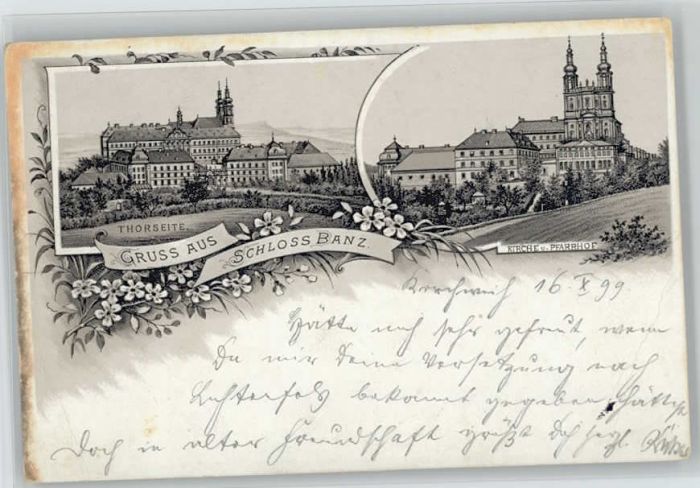 THORSEITE.
GRUSS AUS
SCHLOSS BANZ.
KIRCHE u. PFARRHOF
Kirchweih 16. X 99.
Hätte mich sehr gefreut, wenn
Du mir Deine Versetzung nach
Lichtenfels bekannt gegeben hättest
Doch in alter Freundschaft grüßt Dich herzl.